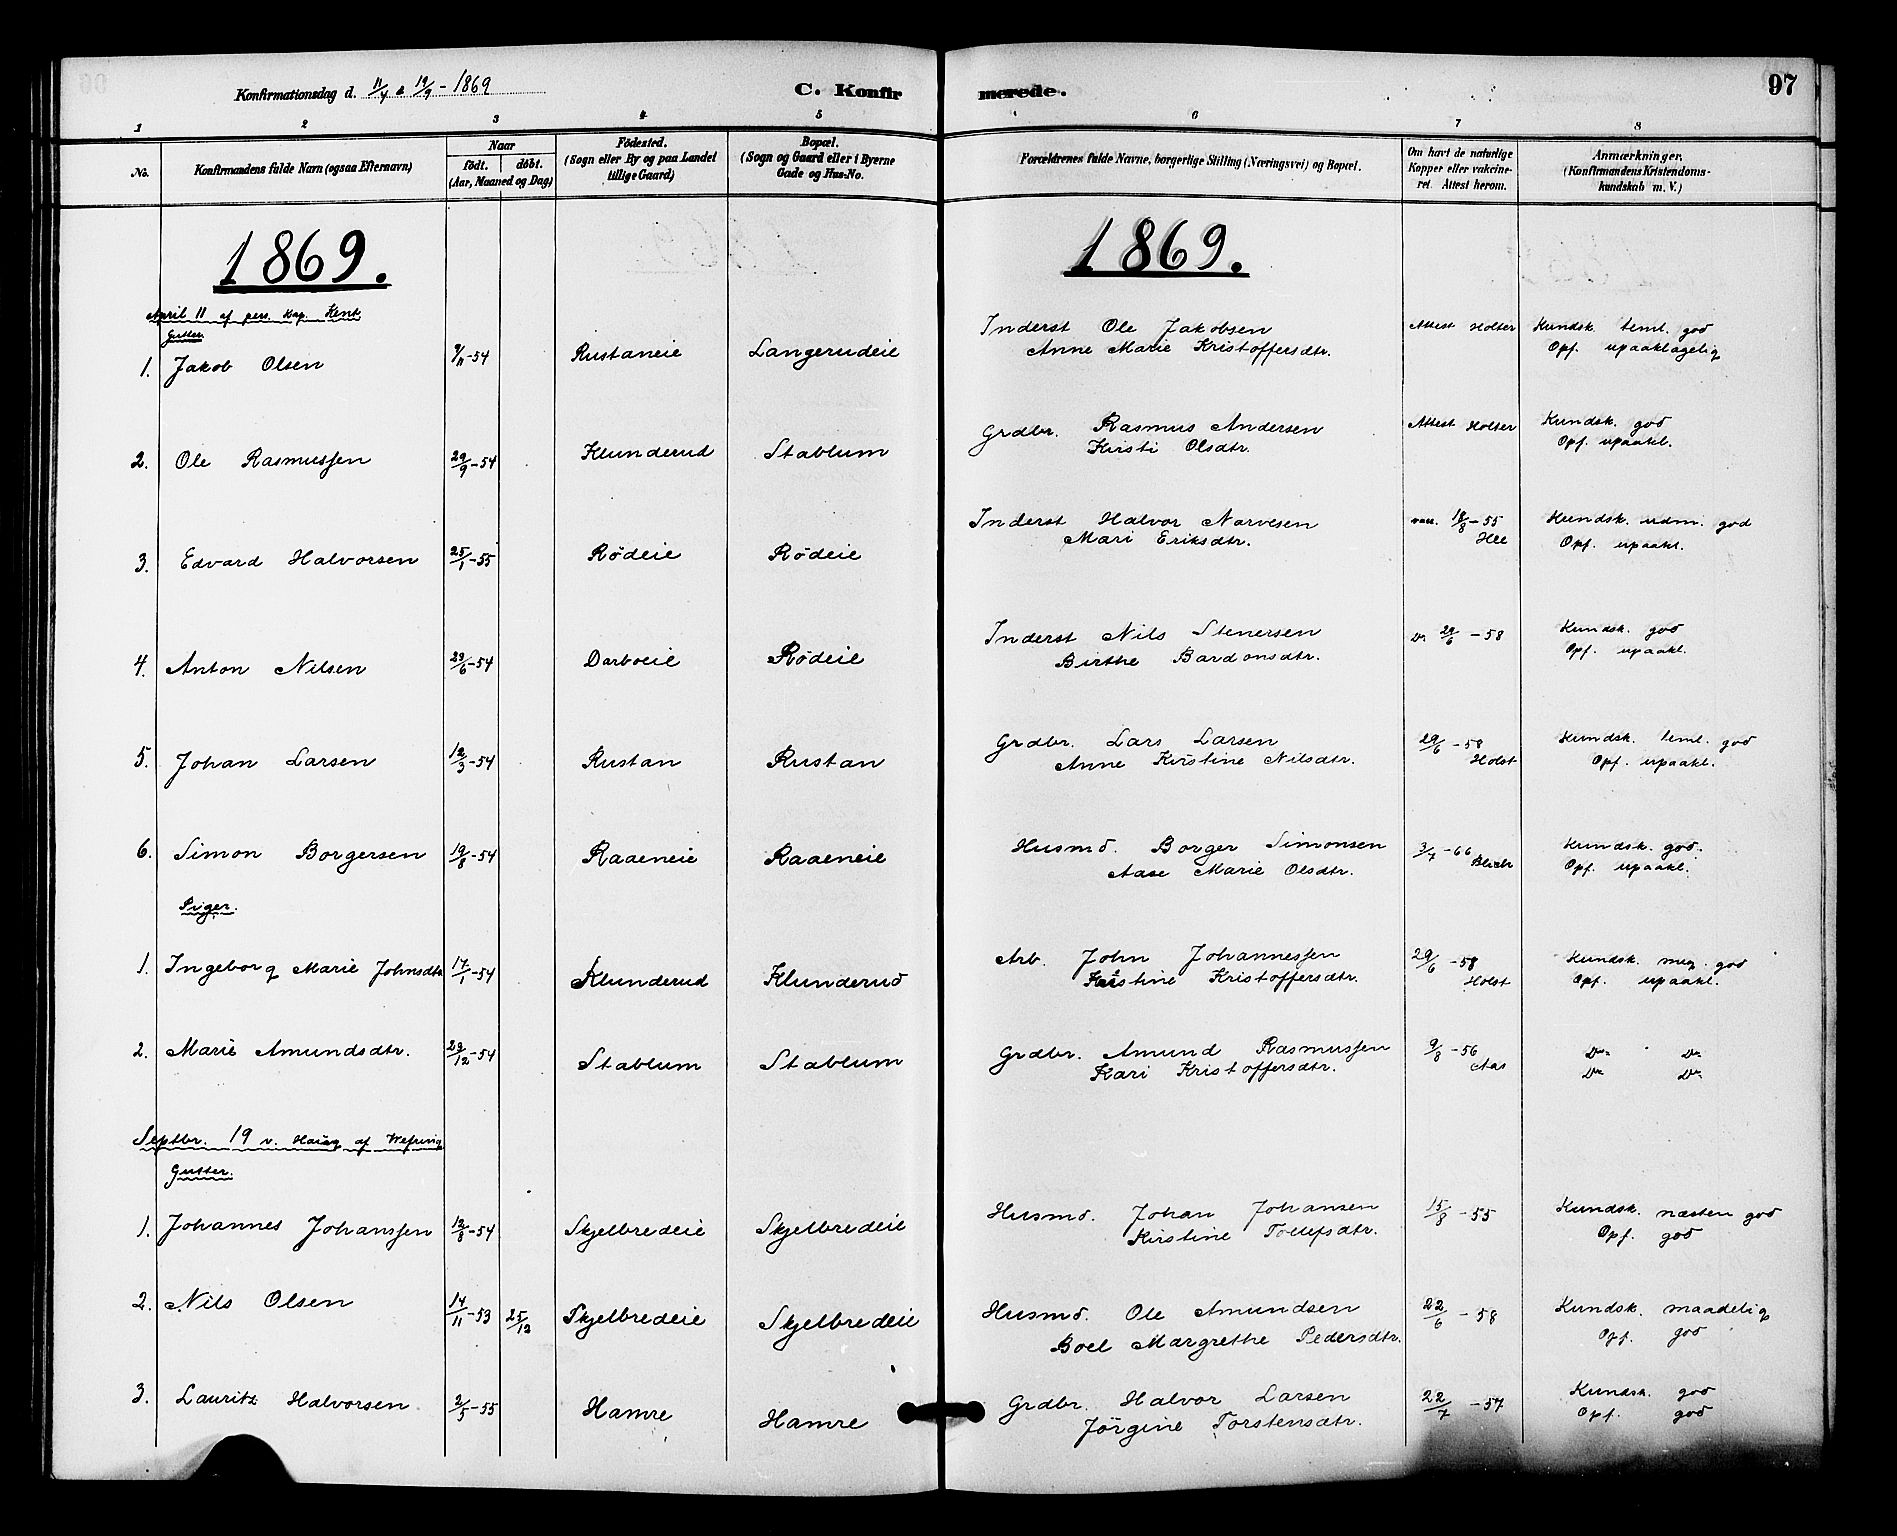 Konfirmationsdag d. 11/4 & 19/9 - 1869
C. Konfirmerede.
97
1 2 3 4 5 6 7 8
No.
Konfirmandens fulde Navn (ogsaa Efternavn)
Naar
født. døbt.
(Aar, Maaned og Dag)
Fødested.
(Sogn eller By og paa Landet
tillige Gaard)
Bopæl.
(Sogn og Gaard eller i Byerne
Gade og Hus-No.
Forældrenes fulde Navne, borgerlige Stilling (Næringsvei) og Bopæl.
Om havt de naturlige
Kopper eller vakcine-
ret. Attest herom.
Anmærkninger.
(Konfirmandens Kristendoms-
kundskab m. V.)
1869. 1869.
April 11 af pers. Kap. Kent
Gutter
1. Jakob Olsen 9/11-54 Rustaneie Langerudeie Inderst Ole Jakobsen Attest Holter Kundsk. teml. god
Anne Marie Kristoffersdtr. Opf. upaaklagelig
2. Ole Rasmussen 29/9-54 Klunderud Stablum Grdbr. Rasmus Andersen Attest Holter Kundsk. god
Kirsti Olsdtr. Opf. upaakl.
3. Edvard Halvorsen 25/1-55 Rödeie Rödeie Inderst Halvor Narvesen vacc. 18/8-55 Kundsk. udm. god
Mari Eriksdtr. Hee Opf. upaakl.
4. Anton Nilsen 23/6-54 Darboeie Rödeie Inderst Nils Stenersen Do 29/6-58 Kundsk. god
Birthe Bardonsdtr. Opf. upaakl.
5. Johan Larsen 12/3-54 Rustan Rustan Grdbr. Lars Larsen 29/6-58 Kundsk. teml. god
Anne Kirstine Nilsdtr. Holst Opf. upaakl.
6. Simon Borgersen 19/8-54 Raaeneie Raaeneie Husmd. Borger Simonsen 3/7-66 Kundsk. god.
Aase Marie Olsdtr. Opf. upaakl.
Piger.
1. Ingeborg Marie Johnsdtr 17/1-54 Klunderud Klunderud Arb. John Johannessen 29/6-58 Kundsk. meg. god
Kristine Kristoffersdtr. Holst Opf. upaakl.
2. Marie Amundsdtr. 23/12-54 Stablum Stablum Grdbr. Amund Rasmussen 9/8-56 Do Do
Kari Kristoffersdtr. Aas Do Do
Septbr. 19 v. Haug af
Gutter.
1. Johannes Johanssen 12/8-54 Skjelbredeie Skjelbredeie Husmd. Johan Johansen 15/8-55 Kundsk. næsten god
Kirstine Tollefsdtr. Opf. god
2. Nils Olsen 14/11-53 25/12 Skjelbredeie Skjelbredeie Husmd. Ole Amundsen 22/6-58 Kundsk. maadelig
Boel Margrethe Pedersdtr. Opf. god
3. Lauritz Halvorsen 2/5-55 Hamre Hamre Grdbr. Halvor Larsen 22/7-57 Kundsk. god
Jörgine Torstensdtr. Opf. god